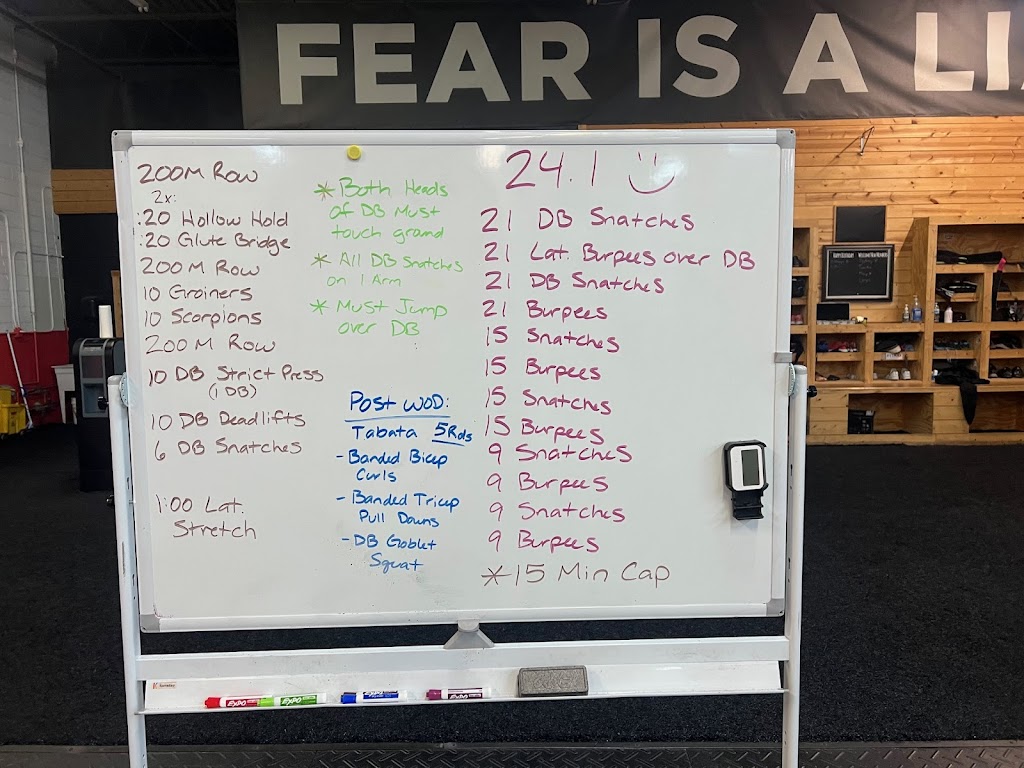 FEAR IS A LI
200M Row
2x:
:20 Hollow Hold
:20 Glute Bridge
200 M Row
10 Groiners
10 Scorpions
200 M Row
10 DB Strict Press
(1 DB)
10 DB Deadlifts
6 DB Snatches
1:00 Lat.
Stretch
* Both Heads
of DB Must
touch ground
* All DB Snatches
on 1 Arm
* Must Jump
over DB
Post WOD:
Tabata 5Rds
- Banded Bicep
Curls
- Banded Tricep
Pull Downs
- DB Goblet
Squat
24.1
21 DB Snatches
21 Lat. Burpees over DB
21 DB Snatches
21 Burpees
15 Snatches
15 Burpees
15 Snatches
15 Burpees
9 Snatches
9 Burpees
9 Snatches
9 Burpees
*15 Min Cap
EXPO
EXPO
EXPO
EXPO